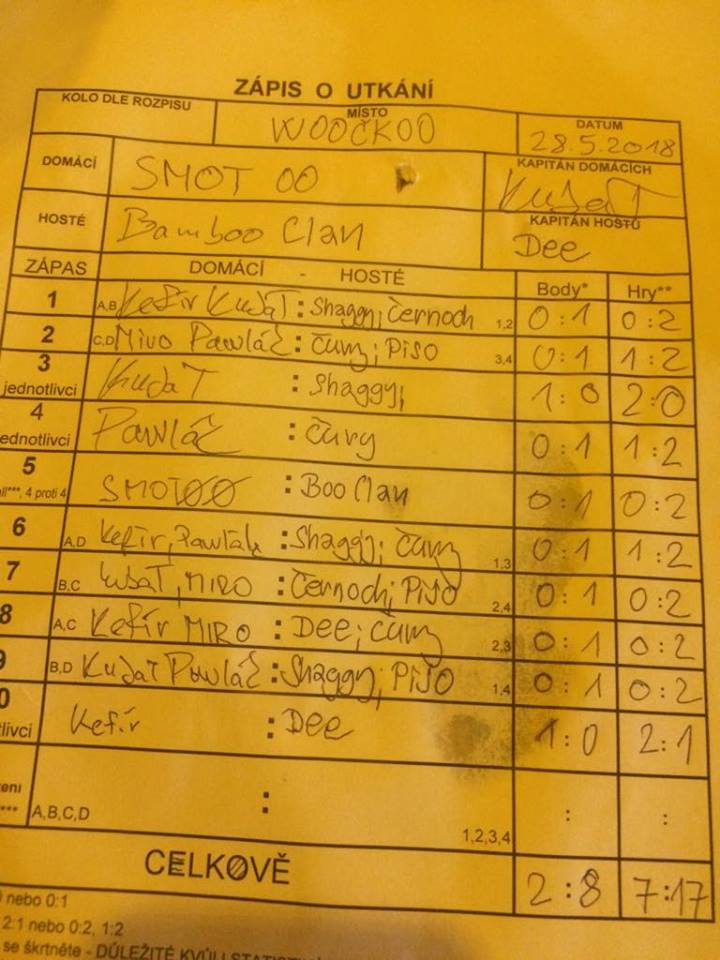 ZÁPIS O UTKÁNÍ
KOLO DLE ROZPISU MÍSTO WOOČKOO DATUM 28.5.2018
DOMÁCÍ SMOT OO KAPITÁN DOMÁCÍCH KuJaT
HOSTÉ Bamboo Clan KAPITÁN HOSTŮ Dee
ZÁPAS DOMÁCÍ - HOSTÉ Body* Hry**
1 A,B Kefír KuJaT : Shaggy, Černoch 1,2 0:1 0:2
2 C,D Miro Pawláč : Čury, Piso 3,4 0:1 1:2
3 jednotlivci KuJaT : Shaggy, 1:0 2:0
4 jednotlivci Pawláč : Čury 0:1 1:2
5 ***, 4 proti 4 SMOTOO : Boo Clan 0:1 0:2
6 A,D Kefír, Pawlák : Shaggy, Čury 1,3 0:1 1:2
7 B,C KuJaT, MIRO : Černoch, Piso 2,4 0:1 0:2
8 A,C Kefír MIRO : Dee, Čury 2,3 0:1 0:2
9 B,D KuJaT Pawláč : Shaggy, Piso 1,4 0:1 0:2
0 tlivci Kefír : Dee 1:0 2:1
ření *** A,B,C,D : 1,2,3,4 : :
CELKOVĚ 2:8 7:17
0 nebo 0:1
2:1 nebo 0:2, 1:2
se škrtněte - DŮLEŽITÉ KVŮLI